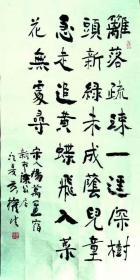 籬落疏疎一逕深樹
頭新緑未成蔭兒童
急走追黄蝶飛入菜
花無處尋
宋人楊萬里宿
新市徐公店